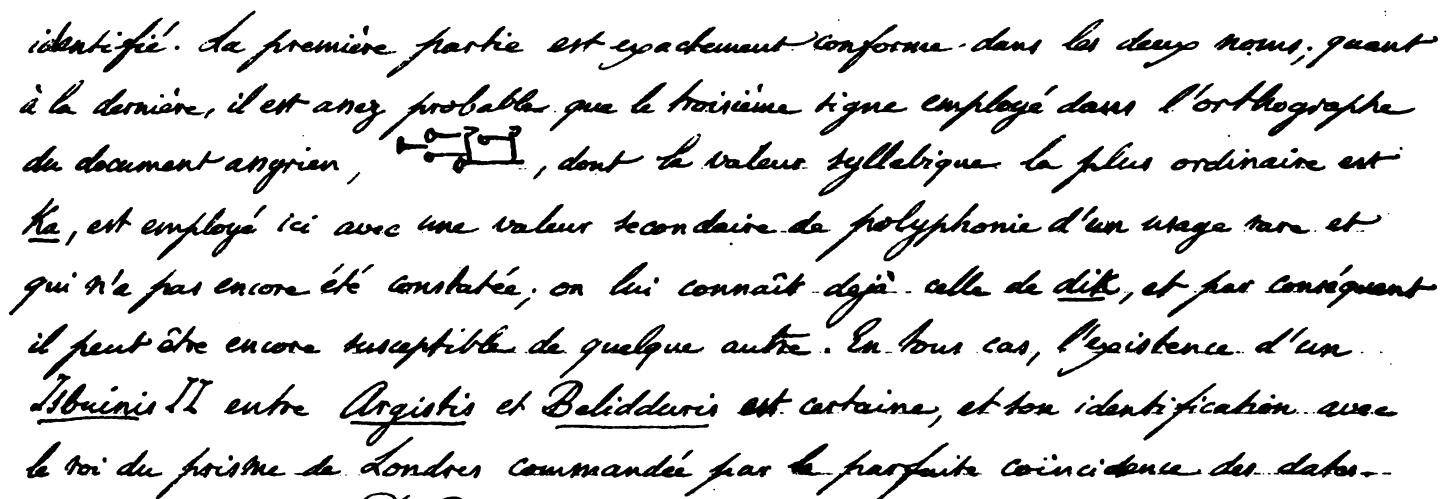 identifié. La première partie est exactement conforme dans les deux noms; quant
à la dernière, il est assez probable que le troisième signe employé dans l'orthographe
du document assyrien, , dont la valeur syllabique la plus ordinaire est
Ka, est employé ici avec une valeur secondaire de polyphonie d'un usage rare et
qui n'a pas encore été constatée; on lui connaît déjà celle de dik, et par conséquent
il peut être encore susceptible de quelque autre. En tous cas, l'existence d'un
Isbuinis II entre Argistis et Belidduris est certaine, et son identification avec
le roi du prisme de Londres commandée par la parfaite coïncidence des dates.